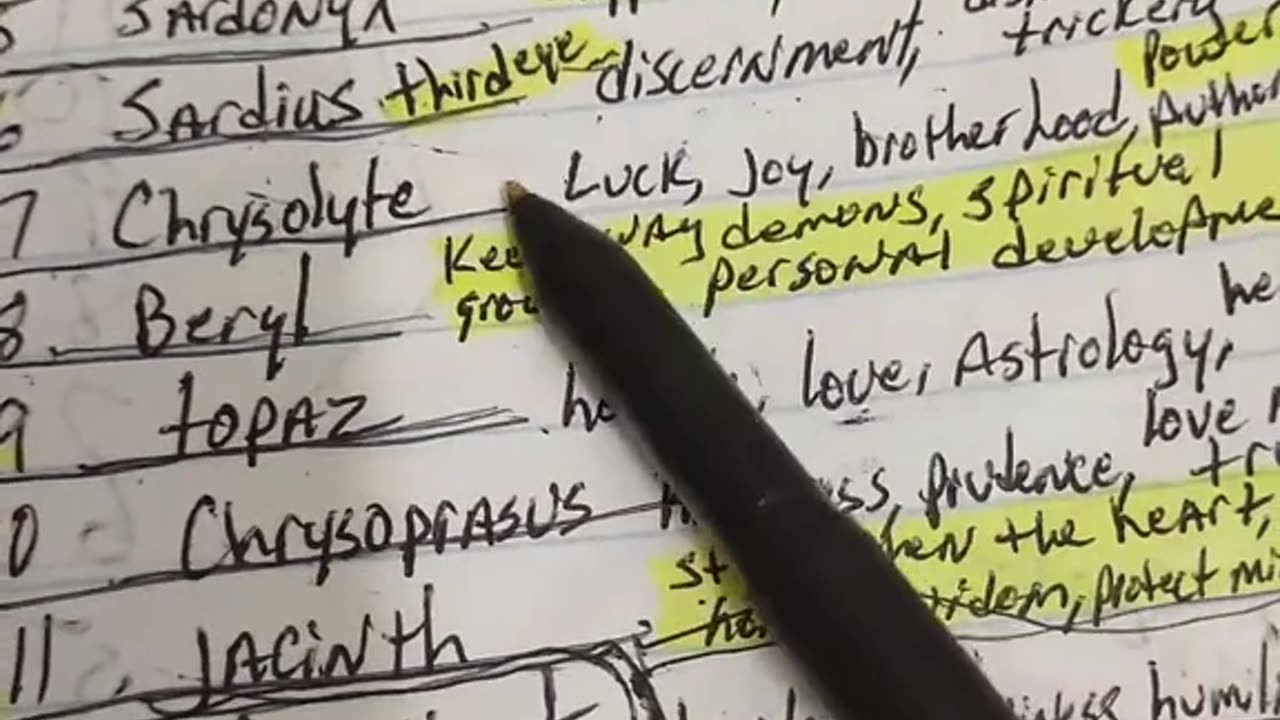 5 SArdonyx
6 SArdius thirdeye discernment, trickery
Powder
7 Chrysolyte Luck, Joy, brotherhood, Author
Kee wAy demons, spiritual
8 Beryl grou personAl developme
9 topAz love, Astrology, he
love
0 ChrysoprAsus ss, prudence, tr
st hen the heArt,
dom, protect mi
11 JAcinth
humil